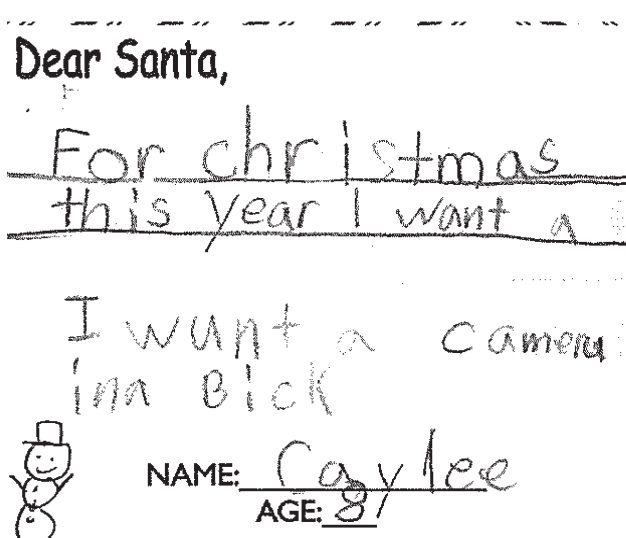 Dear Santa,
For christmas
this year I want a
I wunt a cameru
inn Bick
NAME: Caylee
AGE: 8